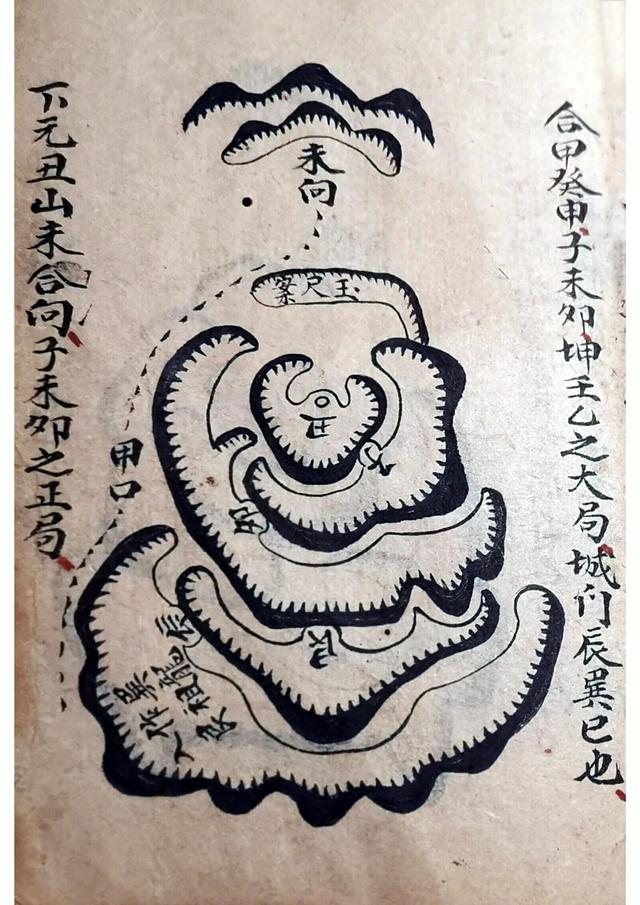 合甲癸申子未卯坤壬乙之大局城门辰巽巳也
未向
玉尺案
丑
卯
艮
甲口
下元丑山未合向子未卯之正局